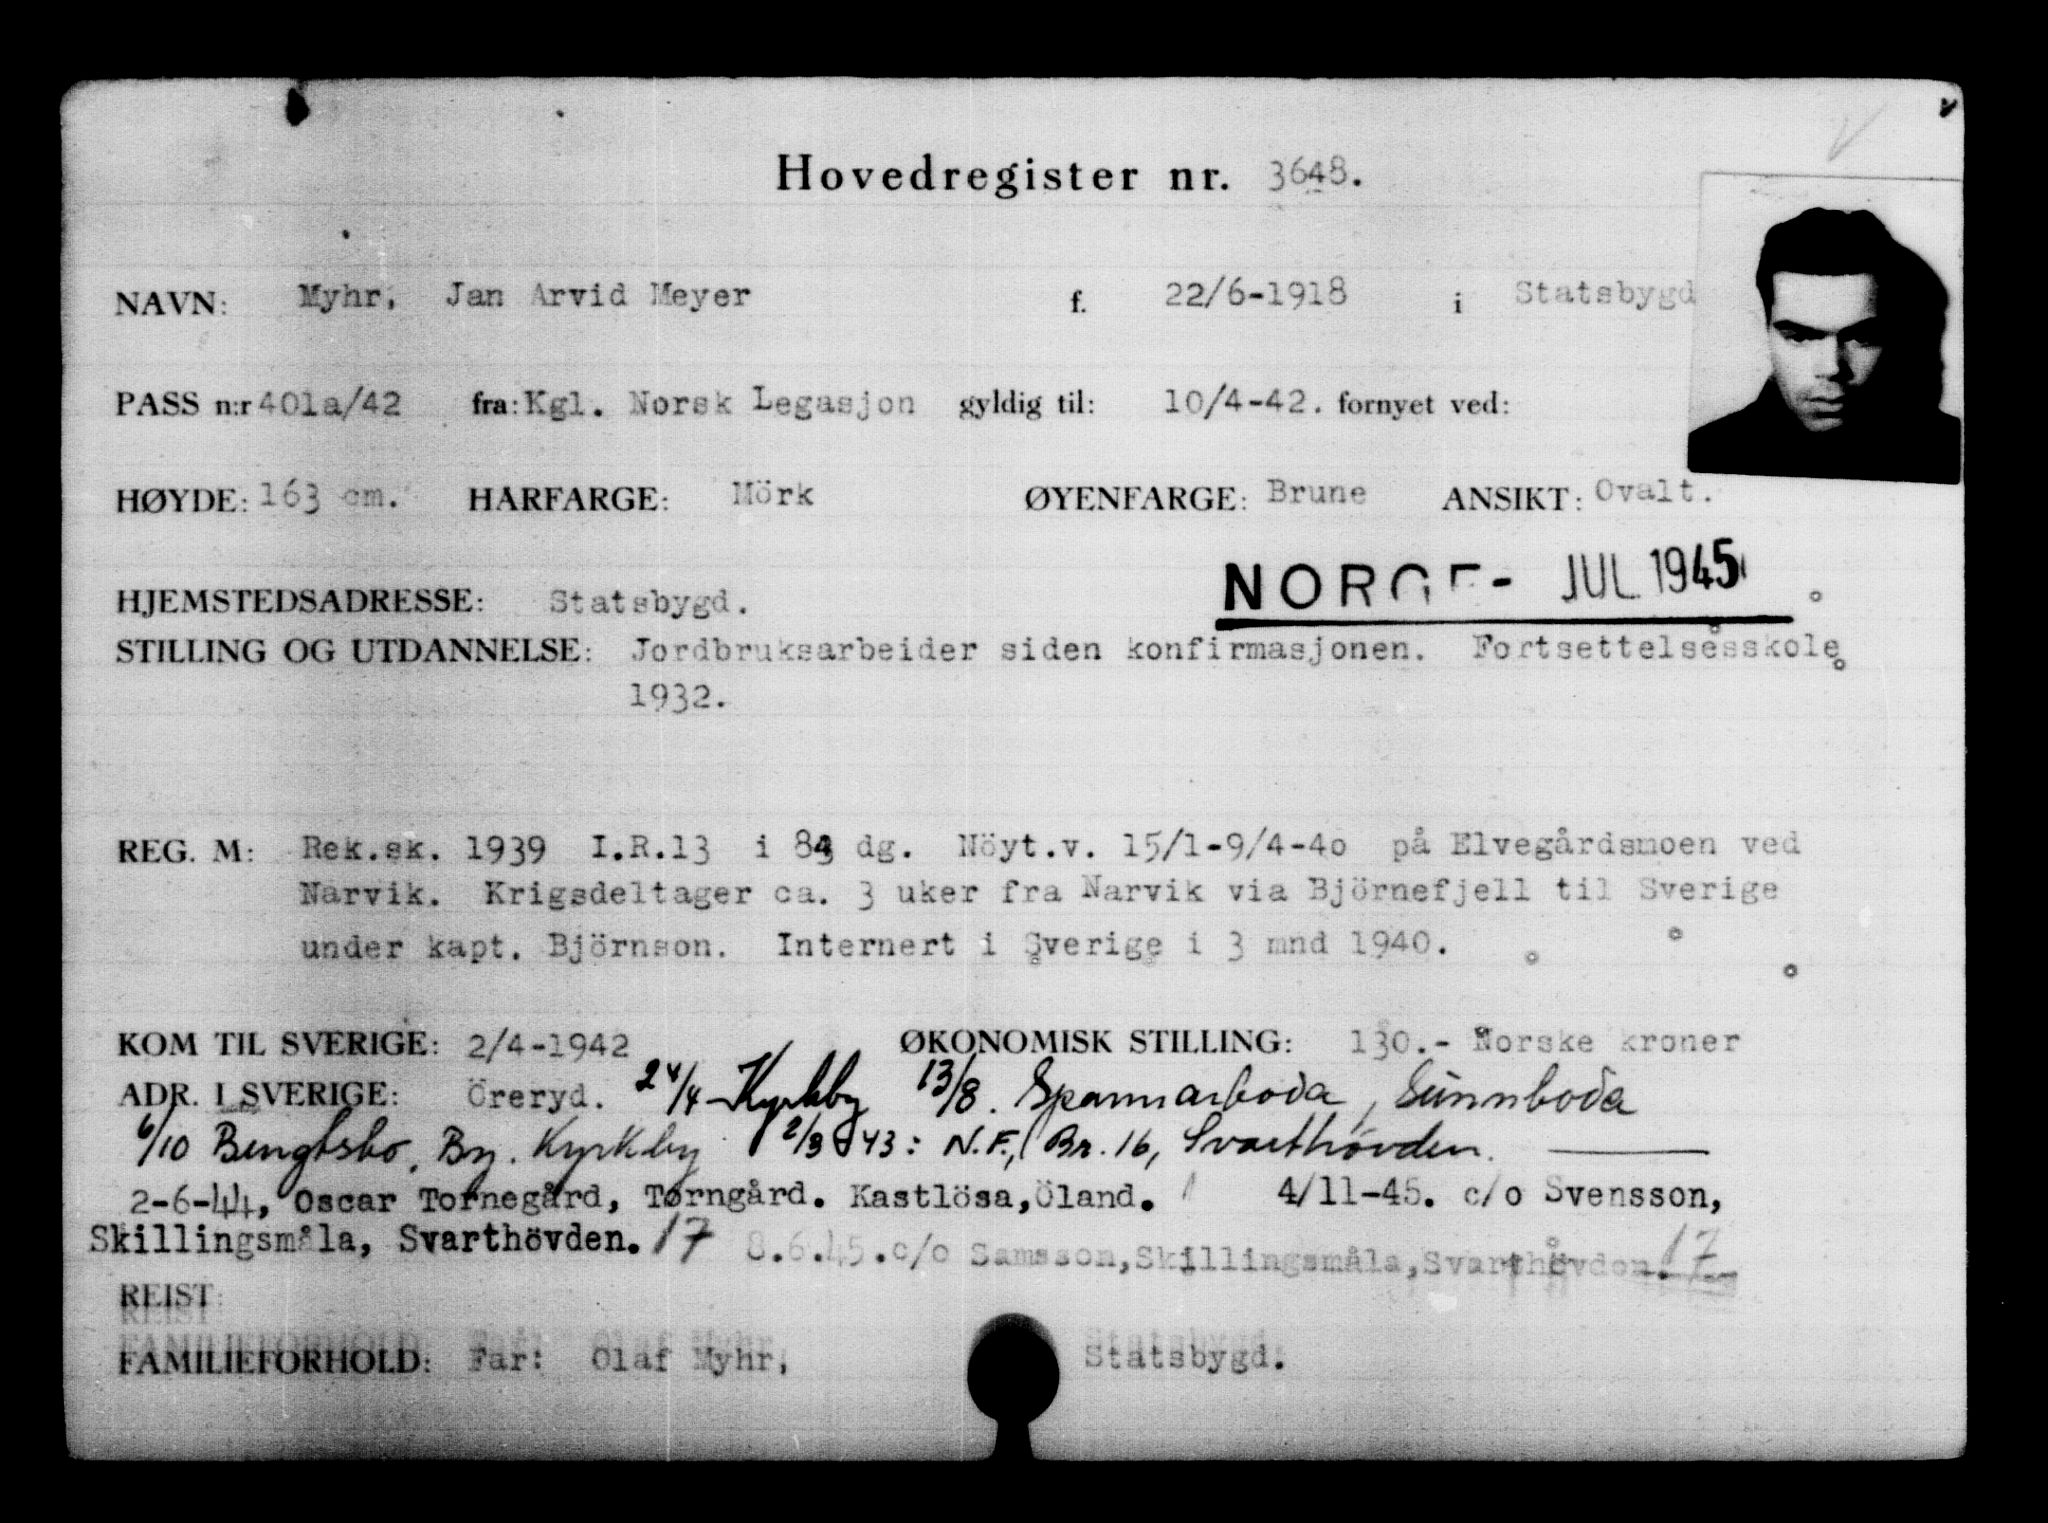 Hovedregister nr. 3648.
NAVN: Myhr, Jan Arvid Meyer f. 22/6-1918 i Statsbygd
PASS n:r 401a/42 fra: Kgl. Norsk Legasjon gyldig til: 10/4-42. fornyet ved:
HØYDE: 163 cm. HÅRFARGE: Mörk ØYENFARGE: Brune ANSIKT: Ovalt.
NORGE - JUL 1945
HJEMSTEDSADRESSE: Statsbygd.
STILLING OG UTDANNELSE: Jordbruksarbeider siden konfirmasjonen. Fortsettelsesskole
1932.
REG. M: Rek.sk. 1939 I.R.13 i 84 dg. Nöyt.v. 15/1-9/4-40 på Elvegårdsmoen ved
Narvik. Krigsdeltager ca. 3 uker fra Narvik via Björnefjell til Sverige
under kapt. Björnson. Internert i Sverige i 3 mnd 1940.
KOM TIL SVERIGE: 2/4-1942 ØKONOMISK STILLING: 130.- Norske kroner
ADR. I SVERIGE: Öreryd. 24/4 - Kyrkby 13/8. Spannarboda, Sünnboda
6/10 Bengtsbo, By. Kyrkby 2/3 43: N.F., Br. 16, Svarthövden.
2-6-44, Oscar Tornegård, Torngård. Kastlösa, Öland. 4/11-45. c/o Svensson,
Skillingsmåla, Svarthövden. 17 8.6.45. c/o Samsson, Skillingsmåla, Svarthövden. 17
REIST:
FAMILIEFORHOLD: Far: Olaf Myhr, Statsbygd.